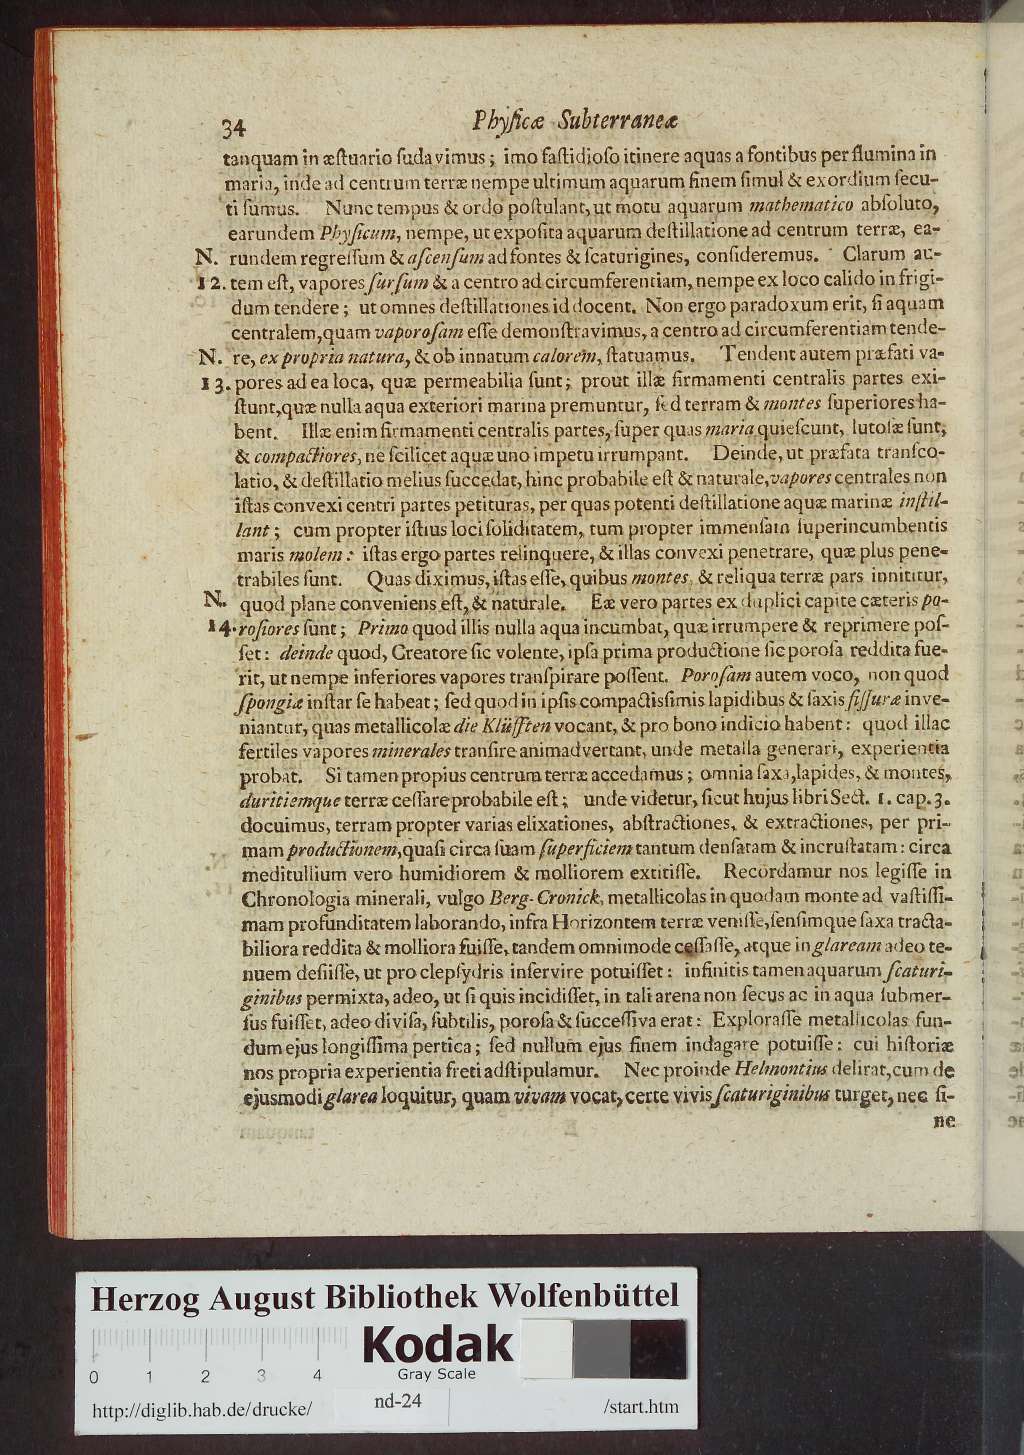 34 Phyſicæ Subterraneæ
tanquam in æſtuario ſudavimus; imo faſtidioſo itinere aquas a fontibus per flumina in
maria, inde ad centrum terræ nempe ultimum aquarum finem ſimul & exordium ſecu-
ti ſumus. Nunc tempus & ordo poſtulant, ut motu aquarum mathematico abſoluto,
earundem Phyſicum, nempe, ut expoſita aquarum deſtillatione ad centrum terræ, ea-
N. rundem regreſſum & aſcenſum ad fontes & ſcaturigines, conſideremus. Clarum au-
12. tem eſt, vapores ſurſum & a centro ad circumferentiam, nempe ex loco calido in frigi-
dum tendere; ut omnes deſtillationes id docent. Non ergo paradoxum erit, ſi aquam
centralem, quam vaporoſam eſſe demonſtravimus, a centro ad circumferentiam tende-
N. re, ex propria natura, & ob innatum calorem, ſtatuamus. Tendent autem præfati va-
13. pores ad ea loca, quæ permeabilia ſunt; prout illæ firmamenti centralis partes exi-
ſtunt, quæ nulla aqua exteriori marina premuntur, ſed terram & montes ſuperiores ha-
bent. Illæ enim firmamenti centralis partes, ſuper quas maria quieſcunt, lutoſæ ſunt,
& compactiores, ne ſcilicet aquæ uno impetu irrumpant. Deinde, ut præfata tranſco-
latio, & deſtillatio melius ſuccedat, hinc probabile eſt & naturale, vapores centrales non
iſtas convexi centri partes petituras, per quas potenti deſtillatione aquæ marinæ inſtil-
lant; cum propter iſtius loci ſoliditatem, tum propter immenſam ſuperincumbentis
maris molem: iſtas ergo partes relinquere, & illas convexi penetrare, quæ plus pene-
trabiles ſunt. Quas diximus, iſtas eſſe, quibus montes, & reliqua terræ pars innititur,
N. quod plane conveniens eſt, & naturale. Eæ vero partes ex duplici capite cæteris po-
14. roſiores ſunt; Primo quod illis nulla aqua incumbat, quæ irrumpere & reprimere poſ-
ſet: deinde quod, Creatore ſic volente, ipſa prima productione ſic poroſa reddita fue-
rit, ut nempe inferiores vapores tranſpirare poſſent. Poroſam autem voco, non quod
ſpongiæ inſtar ſe habeat; ſed quod in ipſis compactiſſimis lapidibus & ſaxis fiſſuræ inve-
niantur, quas metallicolæ die Klüfften vocant, & pro bono indicio habent: quod illac
fertiles vapores minerales tranſire animadvertant, unde metalla generari, experientia
probat. Si tamen propius centrum terræ accedamus; omnia ſaxa, lapides, & montes,
duritiemque terræ ceſſare probabile eſt; unde videtur, ſicut hujus libri Sect. 1. cap. 3.
docuimus, terram propter varias elixationes, abſtractiones, & extractiones, per pri-
mam productionem, quaſi circa ſuam ſuperficiem tantum denſatam & incruſtatam: circa
meditullium vero humidiorem & molliorem extitiſſe. Recordamur nos legiſſe in
Chronologia minerali, vulgo Berg-Cronick, metallicolas in quodam monte ad vaſtiſſi-
mam profunditatem laborando, infra Horizontem terræ veniſſe, ſenſimque ſaxa tracta-
biliora reddita & molliora fuiſſe, tandem omnimode ceſſaſſe, atque in glaream adeo te-
nuem deſiiſſe, ut pro clepſydris inſervire potuiſſet: infinitis tamen aquarum ſcaturi-
ginibus permixta, adeo, ut ſi quis incidiſſet, in tali arena non ſecus ac in aqua ſubmer-
ſus fuiſſet, adeo diviſa, ſubtilis, poroſa & ſucceſſiva erat: Exploraſſe metallicolas fun-
dum ejus longiſſima pertica; ſed nullum ejus finem indagare potuiſſe: cui hiſtoriæ
nos propria experientia freti adſtipulamur. Nec proinde Helmontius delirat, cum de
ejusmodi glarea loquitur, quam vivam vocat, certe vivis ſcaturiginibus turget, nec ſi-
ne
Herzog August Bibliothek Wolfenbüttel
Kodak
Gray Scale
0 1 2 3 4
http://diglib.hab.de/drucke/ nd-24 /start.htm